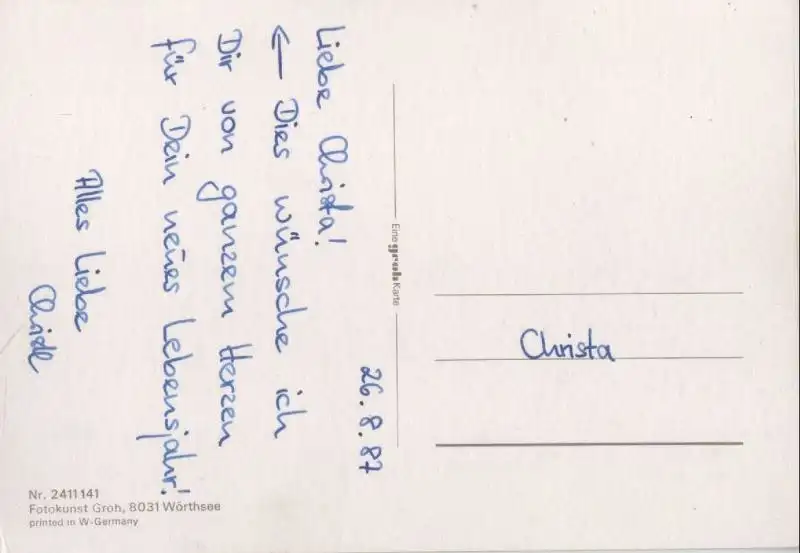 26.8.87
Liebe Christa!
← Dies wünsche ich
Dir von ganzem Herzen
für Dein neues Lebensjahr!
Alles Liebe
Christl
Eine groh Karte
Christa
Nr. 2411141
Fotokunst Groh, 8031 Wörthsee
printed in W-Germany